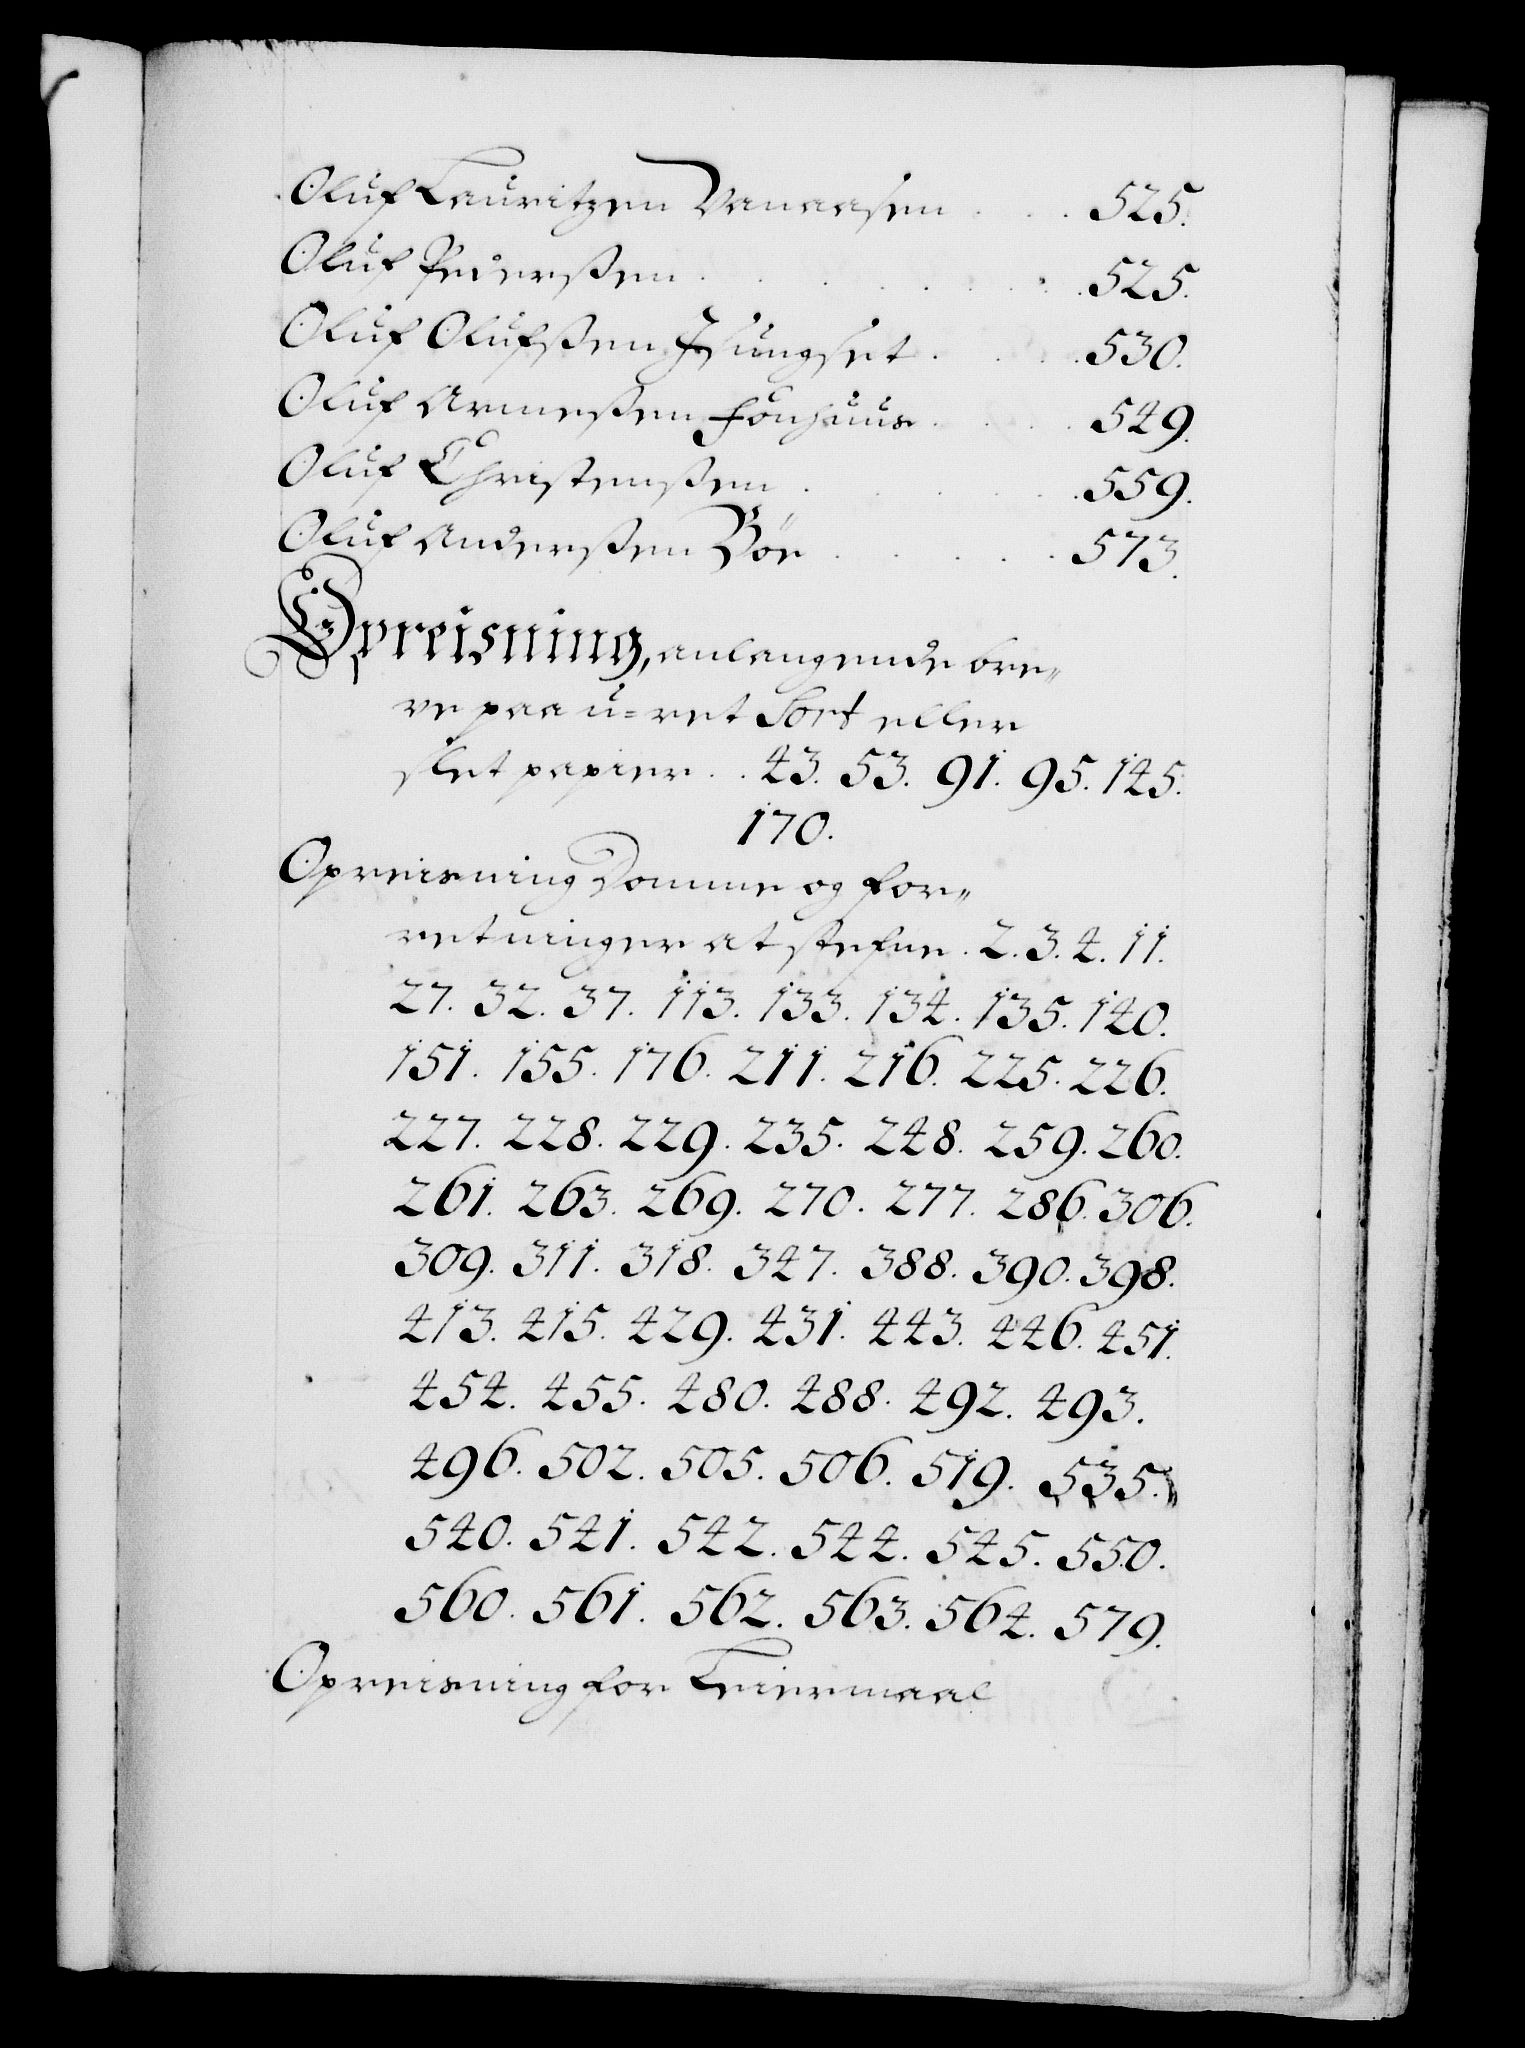 Oluf Lauritzen Vanaasen . . . 525.
Oluf Pederssen . . . . . . . 525.
Oluf Olufssen Isungset . . . 530.
Oluf Arnessen Fonhuus . . . . 549.
Oluf Christenssen . . . . . 559.
Oluf Anderssen Böe . . . . . 573.
Opreisning, anlangende bre„
ve paa u=ret Sort eller
slet papier . . 43. 53. 91. 95. 145.
170.
Opreisning Domme og for„
retninger at stefne . 2. 3. 4. 11.
27. 32. 37. 113. 133. 134. 135. 140.
151. 155. 176. 211. 216. 225. 226.
227. 228. 229. 235. 248. 259. 260.
261. 263. 269. 270. 277. 286. 306.
309. 311. 318. 347. 388. 390. 398.
413. 415. 429. 431. 443. 446. 451.
454. 455. 480. 488. 492. 493.
496. 502. 505. 506. 519. 535.
540. 541. 542. 544. 545. 550.
560. 561. 562. 563. 564. 579.
Opreisning for Leiermaal